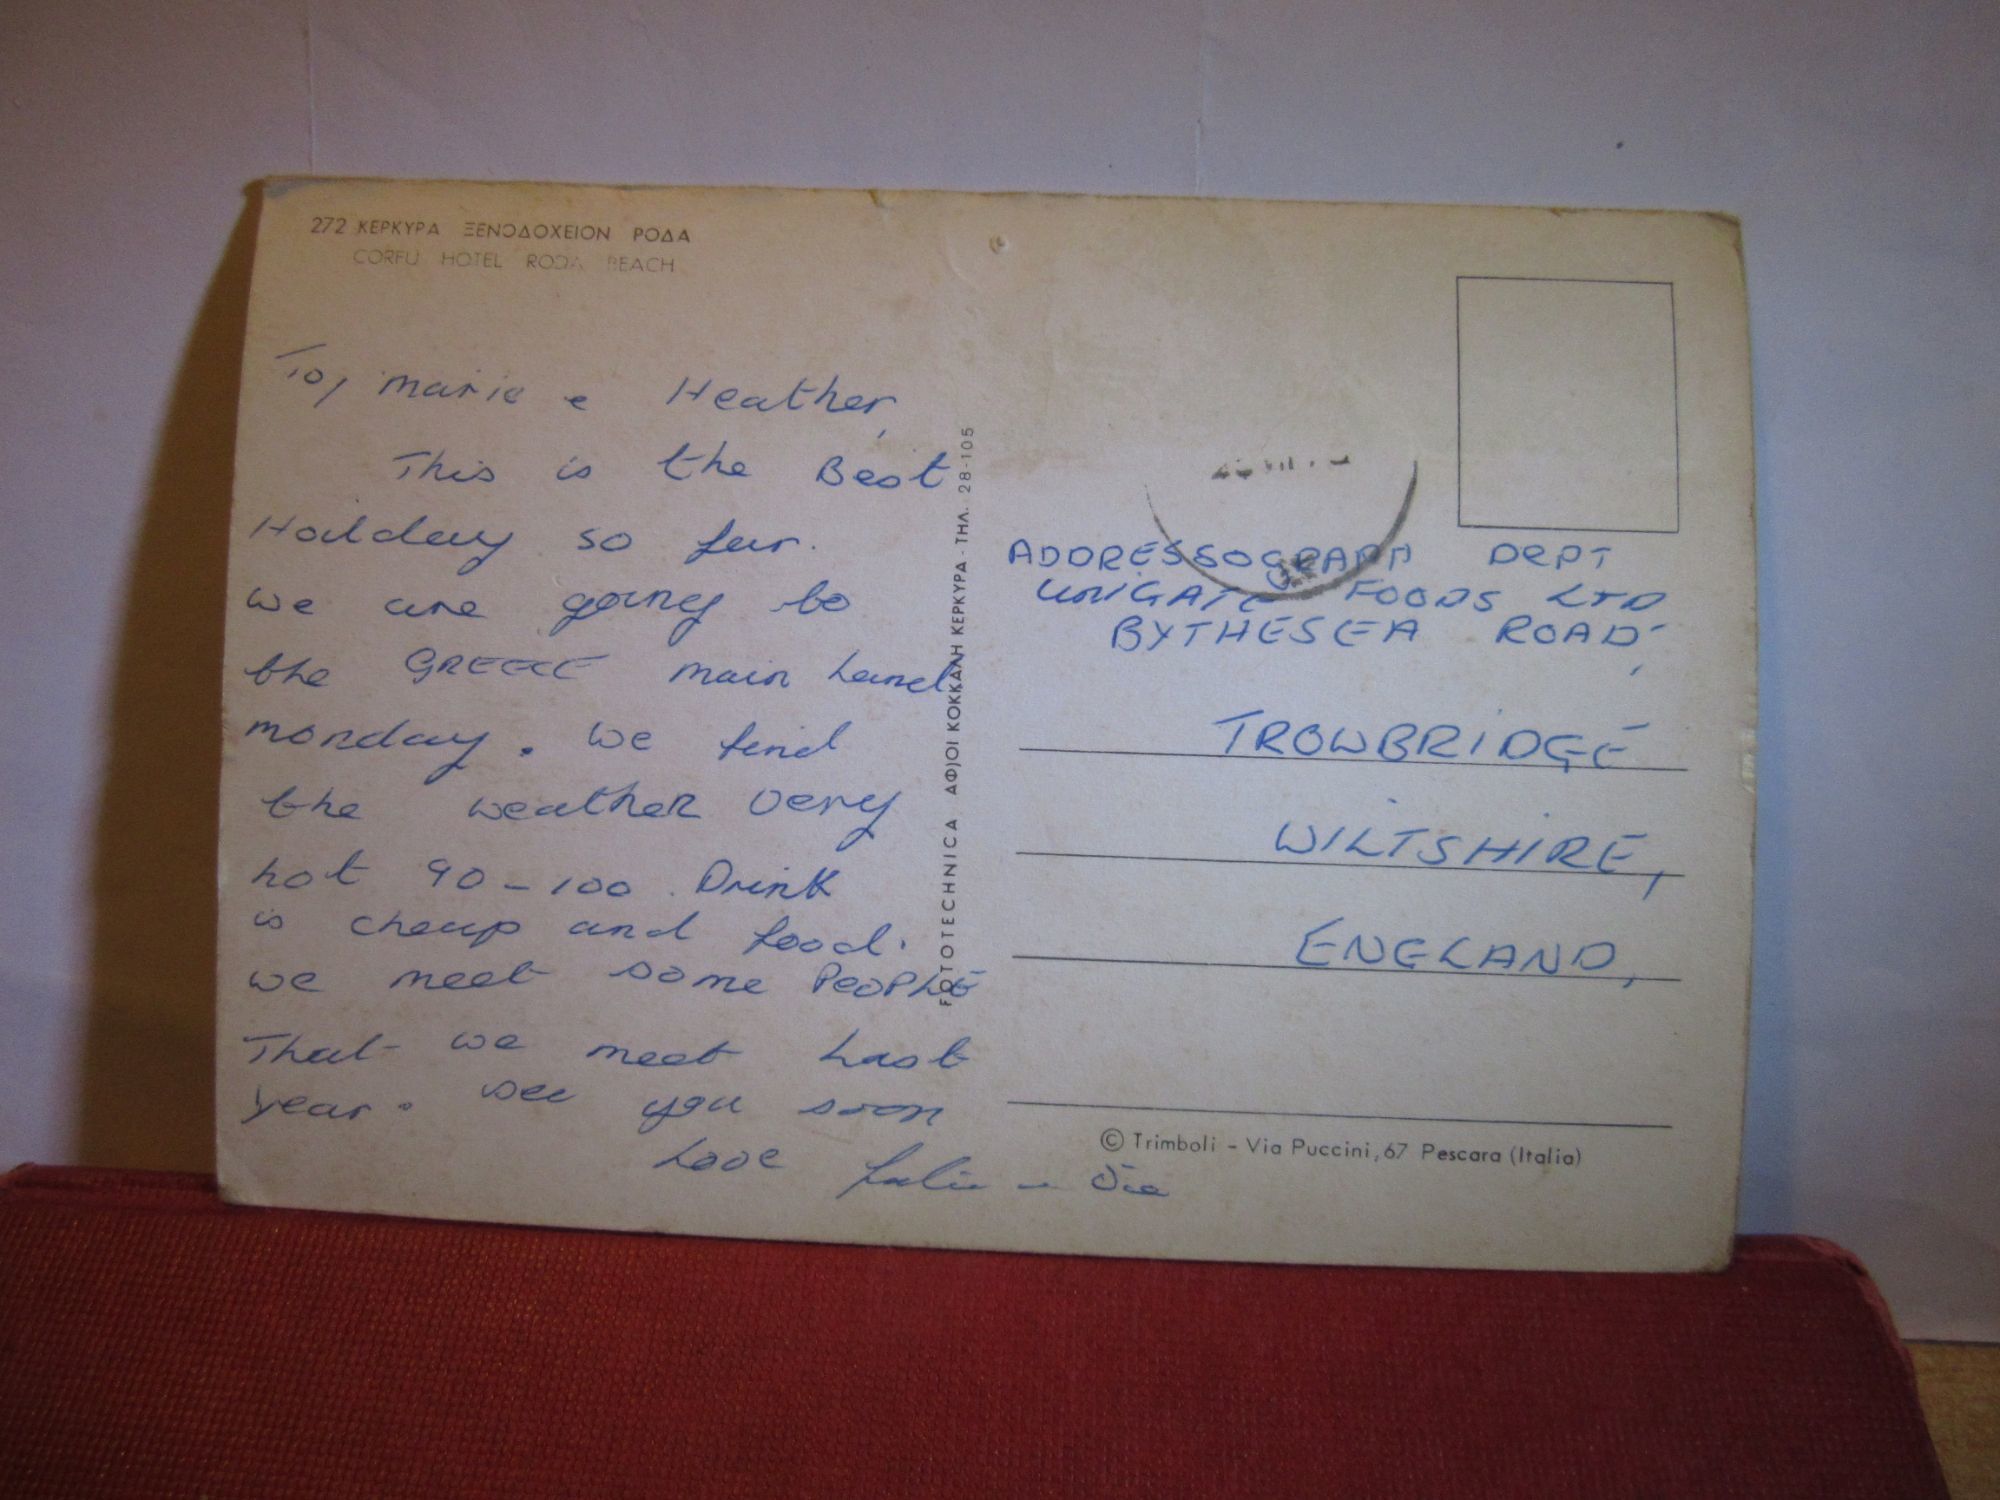 272 ΚΕΡΚΥΡΑ ΞΕΝΟΔΟΧΕΙΟΝ ΡΟΔΑ
CORFU HOTEL RODA BEACH
To, Marie & Heather,
This is the Best
Hoilday so far.
we are going to
the GREECE main Land
monday. We find
the weather very
hot 90 - 100. Drink
is cheap and food.
we meet some PEOPLE
That we meet Last
year. see you soon
Love
FOTOTECHNICA ΑΦ)ΟΙ ΚΟΚΚΑΛΗ ΚΕΡΚΥΡΑ - ΤΗΛ. 28-105
ADDRESSOGRAPH DEPT
UNIGATE FOODS LTD
BYTHESEA ROAD,
TROWBRIDGE
WILTSHIRE,
ENGLAND,
© Trimboli - Via Puccini, 67 Pescara (Italia)